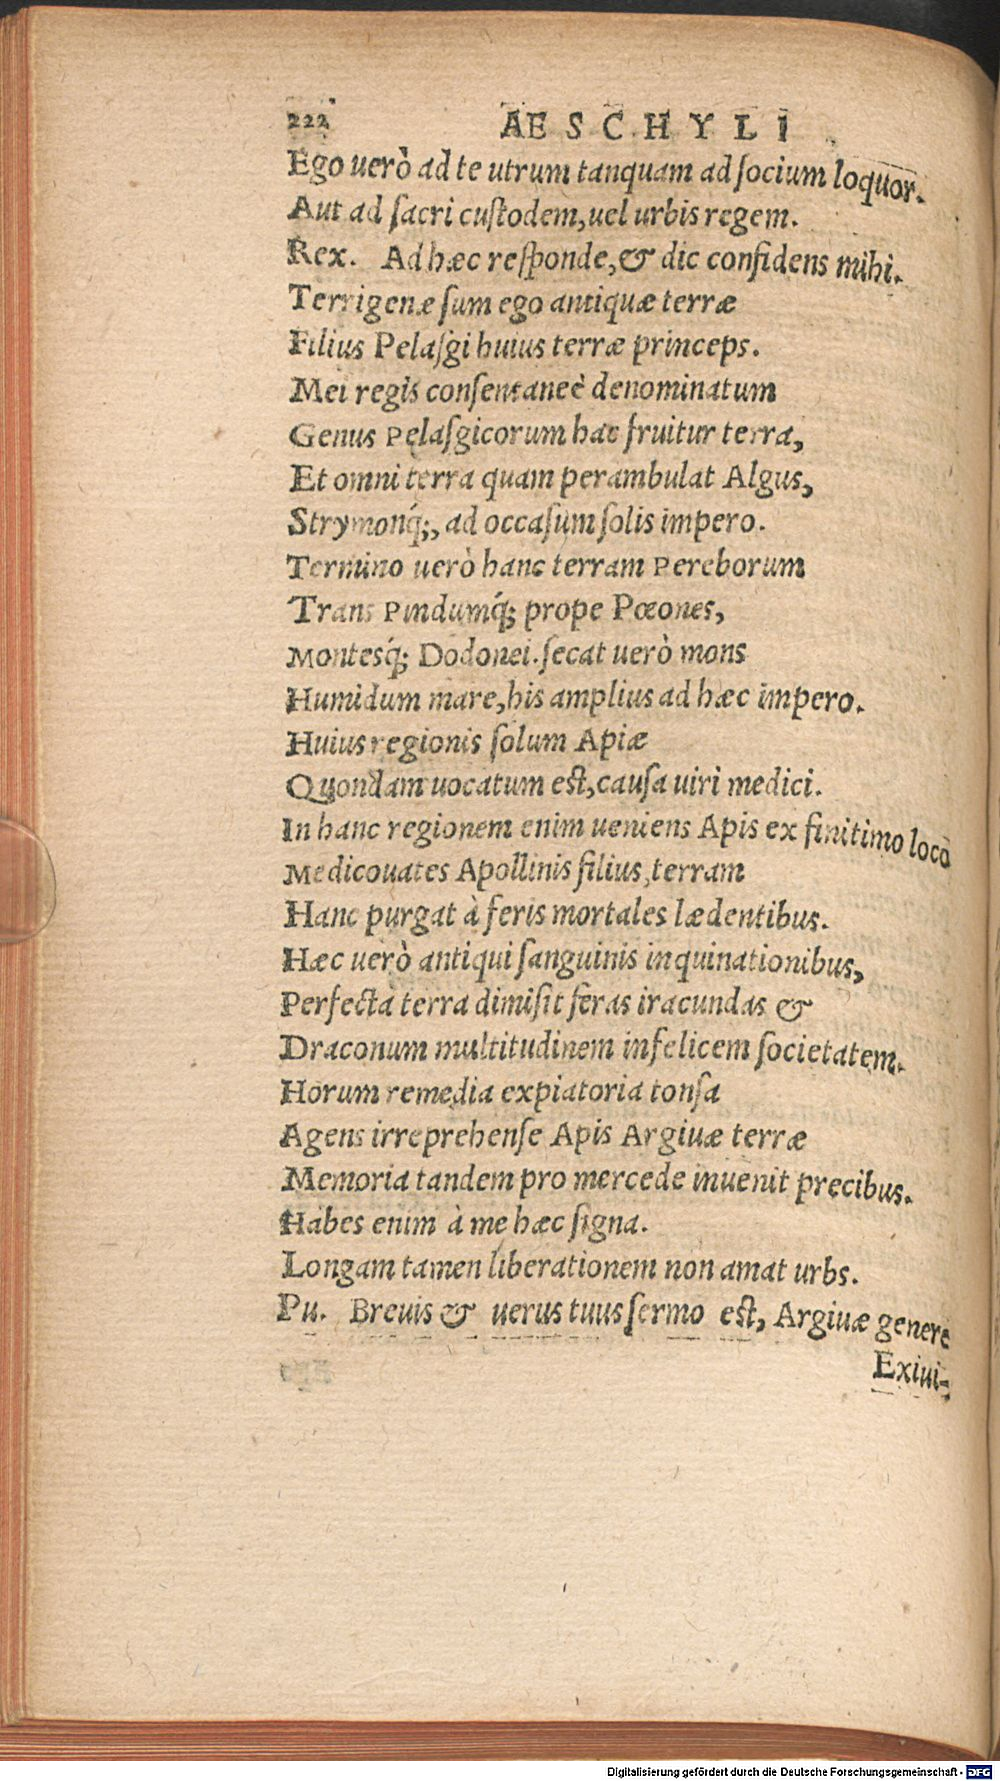 222 AESCHYLI
Ego uerò ad te utrum tanquam ad ſocium loquor.
Aut ad ſacri cuſtodem, uel urbis regem.
Rex. Ad hæc reſponde, & dic confidens mihi.
Terrigenæ ſum ego antiquæ terræ
Filius Pelaſgi huius terræ princeps.
Mei regis conſentaneè denominatum
Genus Pelaſgicorum hac fruitur terra,
Et omni terra quam perambulat Algus,
Strymonq́;, ad occaſum ſolis impero.
Termino uerò hanc terram Pereborum
Trans Pindumq́; prope Pœones,
Montesq́; Dodonei. ſecat uerò mons
Humidum mare, his amplius ad hæc impero.
Huius regionis ſolum Apiæ
Quondam uocatum eſt, cauſa uiri medici.
In hanc regionem enim ueniens Apis ex finitimo loco
Medicouates Apollinis filius, terram
Hanc purgat à feris mortales lædentibus.
Hæc uerò antiqui ſanguinis inquinationibus,
Perfecta terra dimiſit feras iracundas &
Draconum multitudinem infelicem ſocietatem.
Horum remedia expiatoria tonſa
Agens irreprehenſe Apis Argiuæ terræ
Memoria tandem pro mercede inuenit precibus.
Habes enim à me hæc ſigna.
Longam tamen liberationem non amat urbs.
Pu. Breuis & uerus tuus ſermo eſt, Argiuæ genere
Exiui-
Digitalisierung gefördert durch die Deutsche Forschungsgemeinschaft - DFG